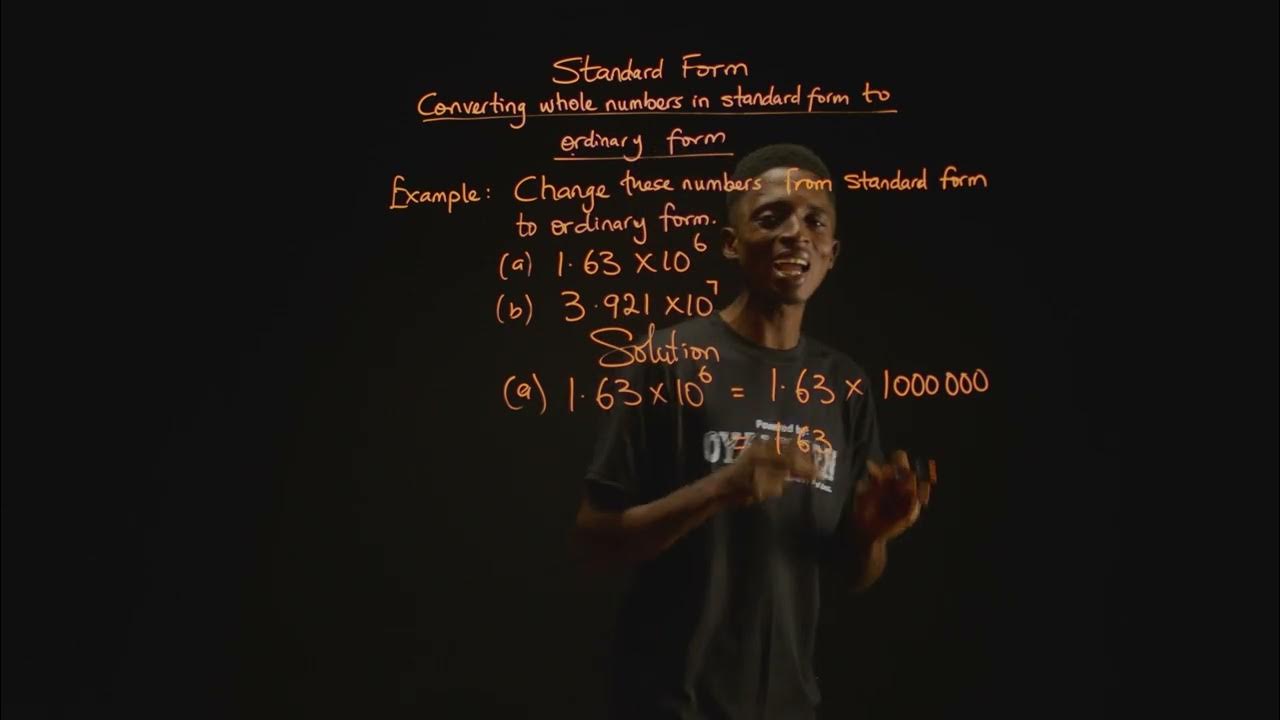 Standard Form
Converting whole numbers in standard form to
ordinary form
Example: Change these numbers from standard form
to ordinary form.
(a) 1.63 × 10⁶
(b) 3.921 × 10⁷
Solution
(a) 1.63 × 10⁶ = 1.63 × 1000 000
Powered by:
= 1.63